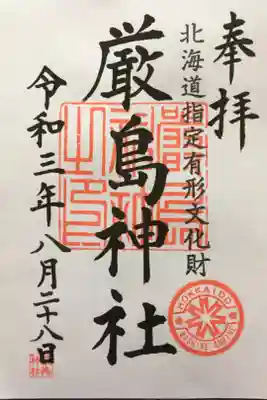 奉拝
北海道指定有形文化財
厳島神社
令和三年八月二十八日
HOKKAIDO